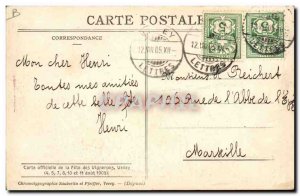 B
CARTE POSTALE
CORRESPONDANCE
VEVEY
12.VIII.05.XII
LETTRES
12.VIII.05
LETTRES
Mon cher Henri
Toutes mes amitiés
de cette belle
Henri
Monsieur de Reichert
Rue de l'Abbé de l'E
Marseille
Carte officielle de la Fête des Vignerons, Vevey
(4, 5, 7, 8, 10 et 11 août 1905).
Chromotypographie Säuberlin et Pfeiffer, Vevey. — (Déposé)